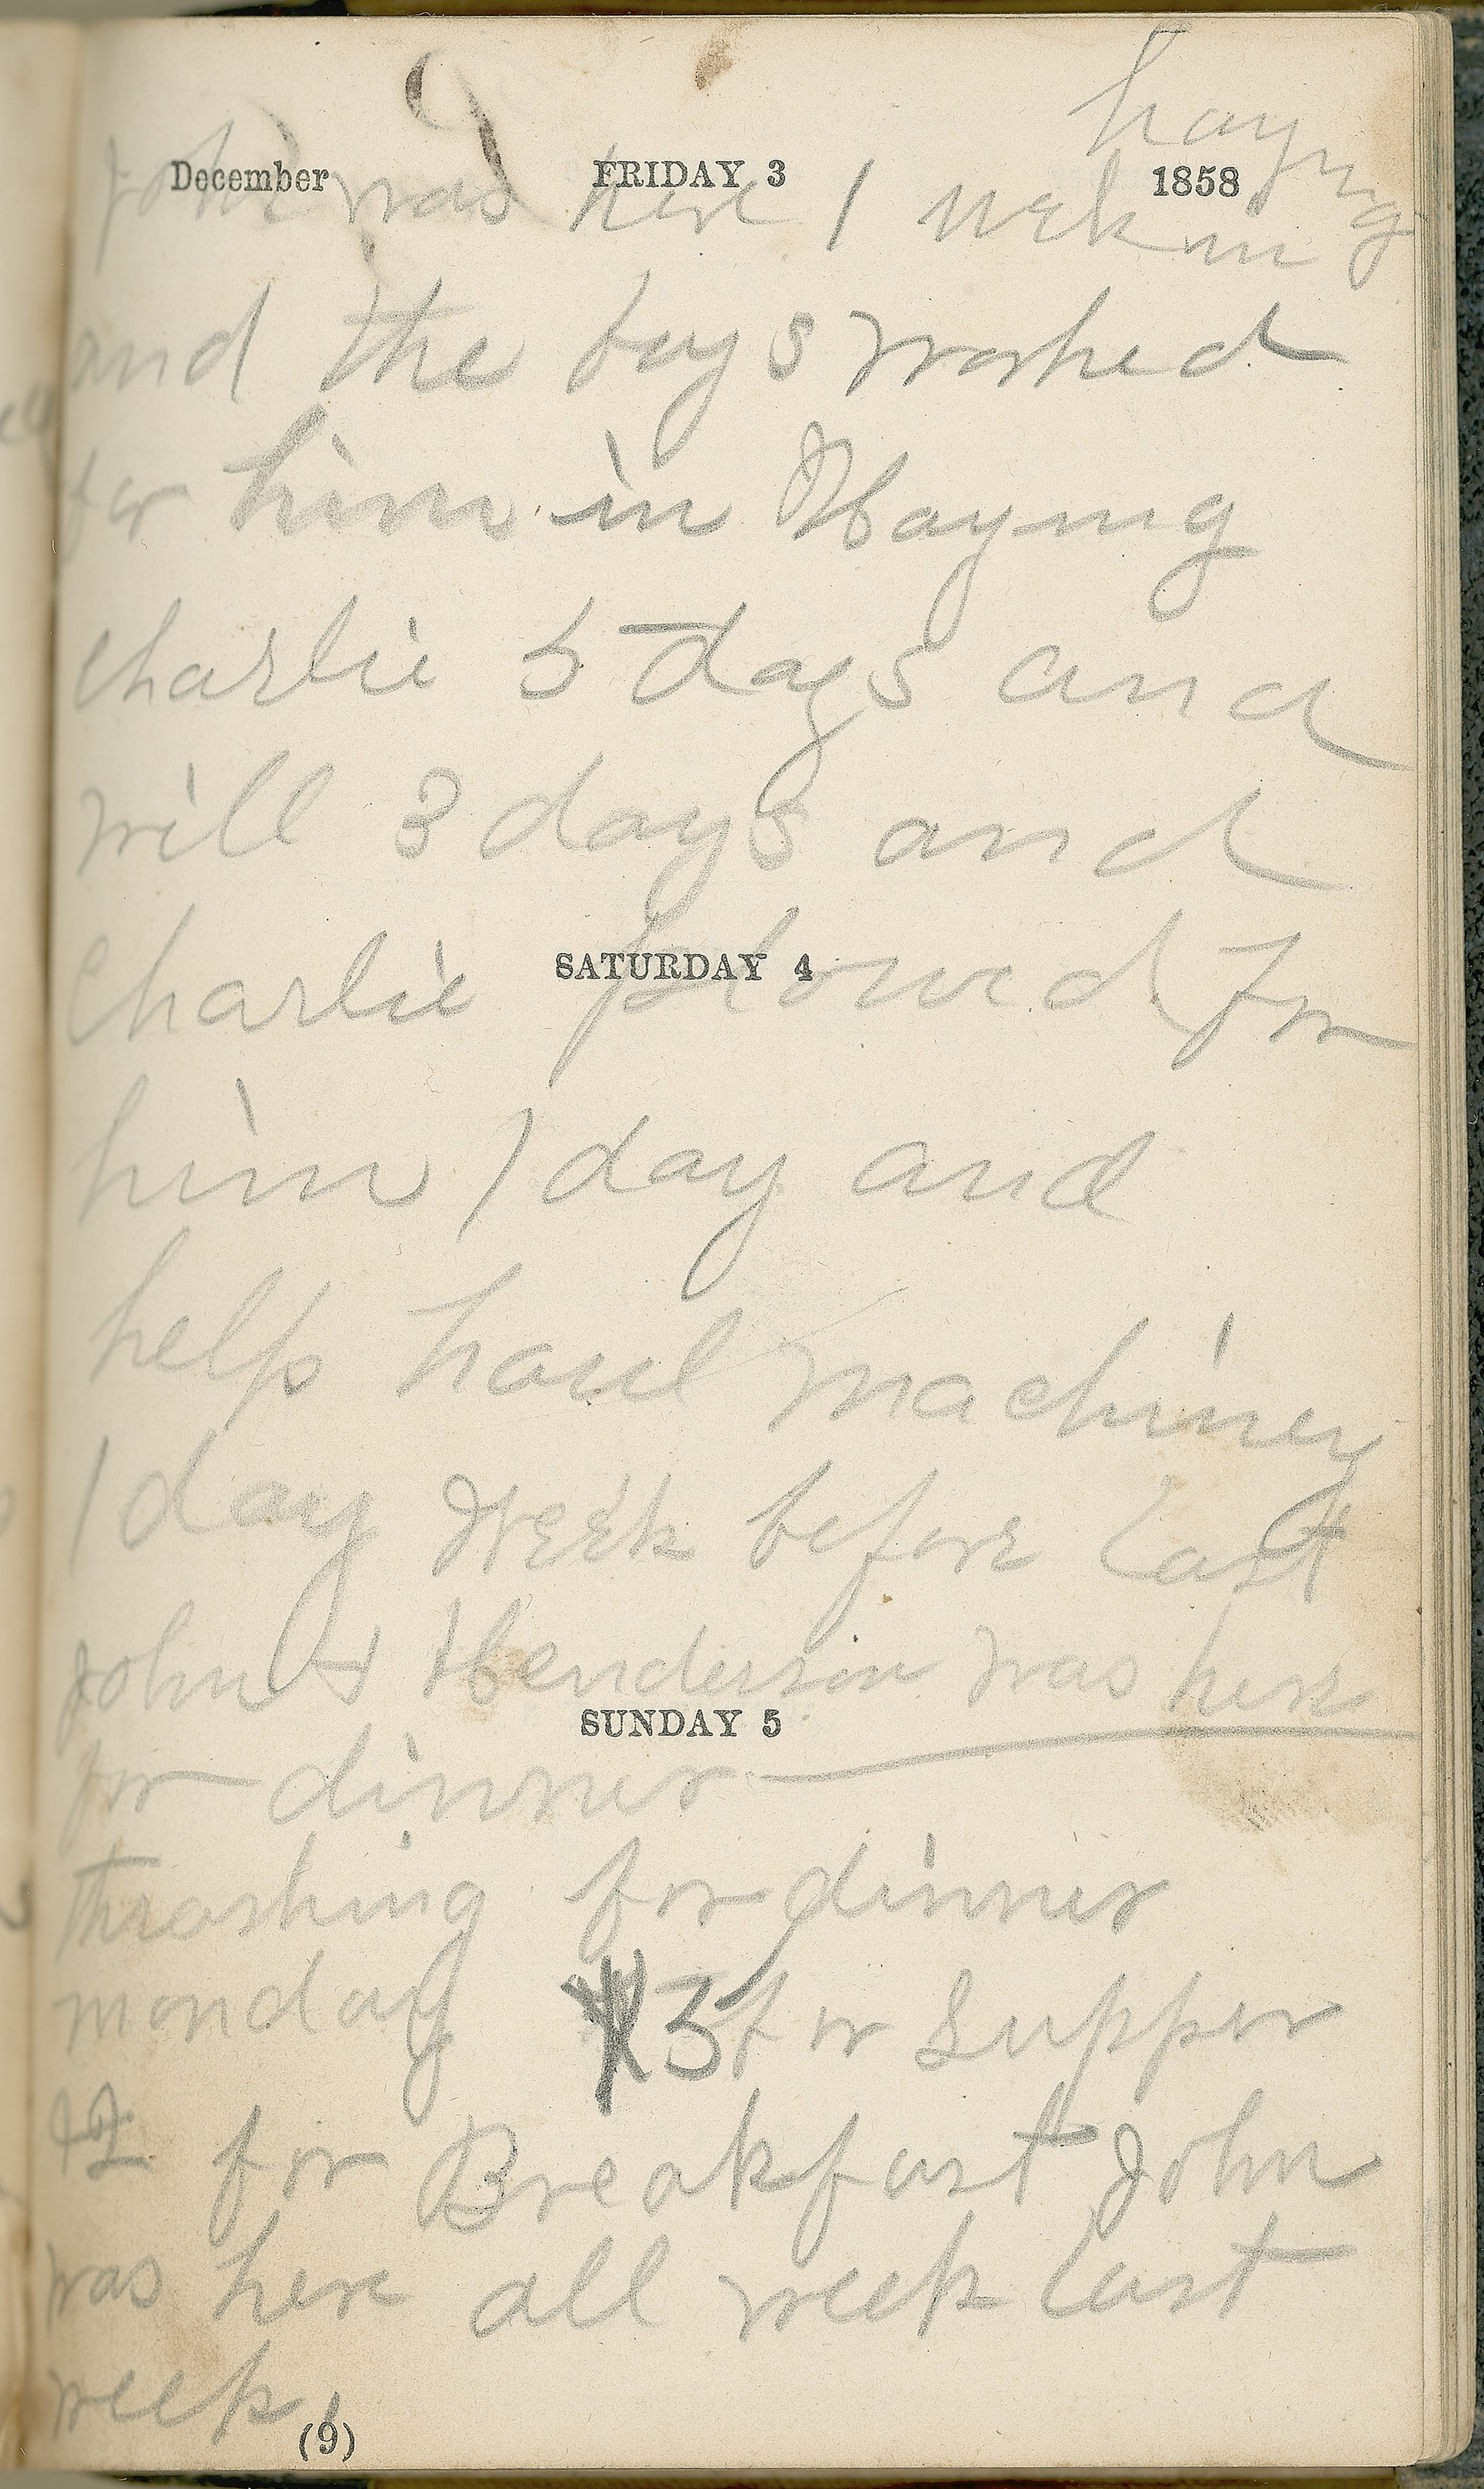 haying
December FRIDAY 3 1858
John was here 1 week in
and the boys worked
for him in Haying
charlie 5 days and
will 3 days and
SATURDAY 4
Charlie plowed for
him 1 day and
help haul machinery
1 day Week before last
John & Henderson was here
SUNDAY 5
for dinner
thrashing for dinner
monday 3 for Supper
12 for Breakfast John
was here all week last
week
(9)